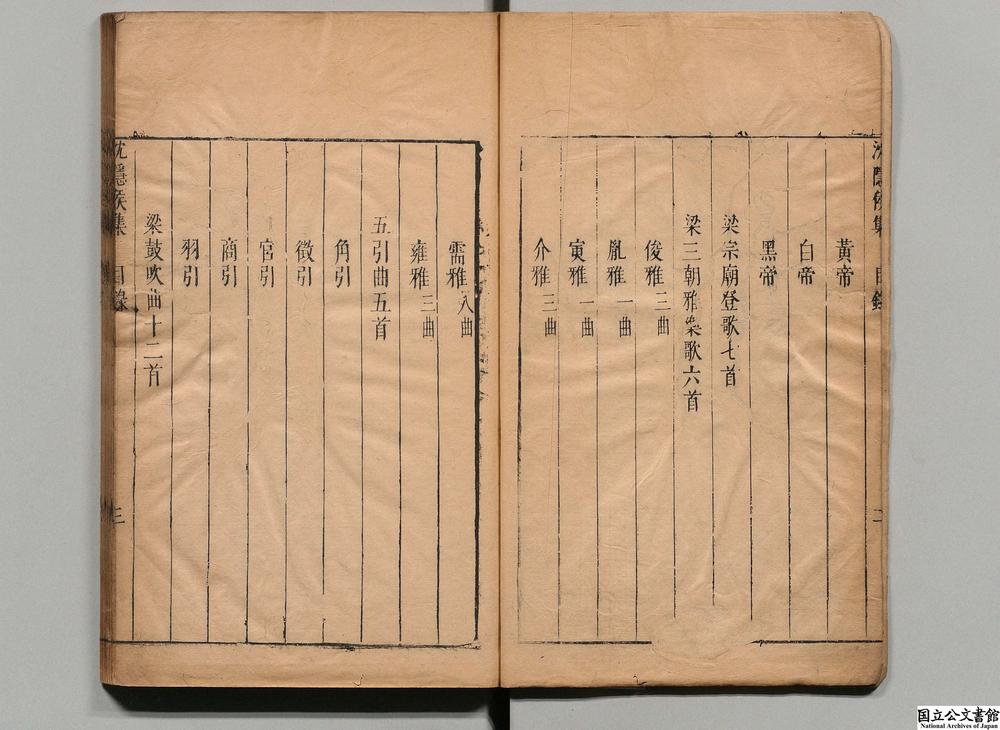 沈隱侯集 目錄 二
黃帝
白帝
黑帝
梁宗廟登歌七首
梁三朝雅樂歌六首
俊雅三曲
胤雅一曲
寅雅一曲
介雅三曲
需雅八曲
雍雅三曲
五引曲五首
角引
徵引
宮引
商引
羽引
梁鼓吹曲十二首
沈隱侯集 目錄 三
国立公文書館
National Archives of Japan